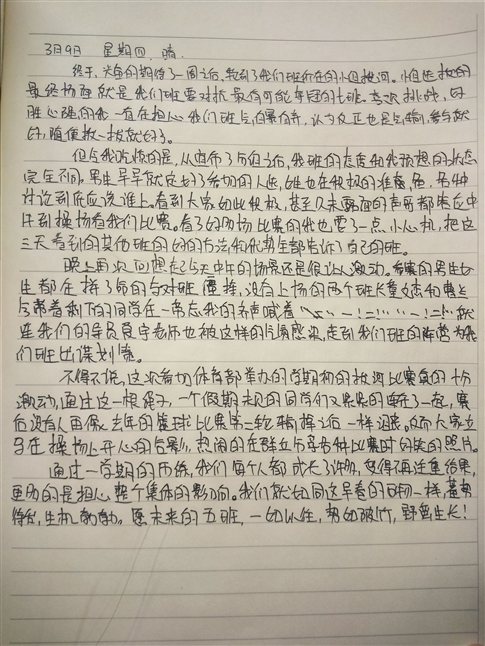 3月9日 星期四 晴.
终于,兴奋的期待了一周之后,轮到了我们班所在的小组拔河。小组赛拔的
最终场面就是我们班要对抗最有可能夺冠的七班。首次挑战,好
胜心强的我一直在担心我们班与,自暴自弃,认为反正也是输,参与就
好,随便拔一拔就好了。
但令我吃惊的是,从宣布了分组之后,我班的态度和我预想的状态
完全不同,男生早早就定好了参加的人选,女生也在积极的准备着,各种
讨论到底应该谁上。看到大家如此积极,甚至久未露面的 都在中
午到操场看我们比赛。看了好几场比赛的我也耍了一点小心机,把这
三天看到的其他班的好的方法和优势全都告诉了自己的班。
晚上再次回想起今天中午的场景还是很让人激动。参赛的男生女
生都在拼了命的与对班 ,没有上场的两个班长
带着剩下的同学在一旁忘我的齐声喊着 就
连我们的 老师也被这样的气氛感染,走到我们班的阵营为我
们班出谋划策。
不得不说,这次看切体育部举办的学期初的拔河比赛真的十分
激动,通过这一根绳子,一个假期未见的同学们又紧紧的连在了一起,赛
后没有人再像去年的篮球比赛第一轮输掉之后一样沮丧,反而大家都
在操场上开心的合影,热闹的在群里分享各种比赛时的美的照片。
通过一学期的历练,我们每个人都成长了许多,变得不再注重结果,
更多的是担心整个集体的影响。我们就如同这早春的万物一样,蓄势
待发,生机勃勃。愿未来的五班,一如以往,势如破竹,野蛮生长!